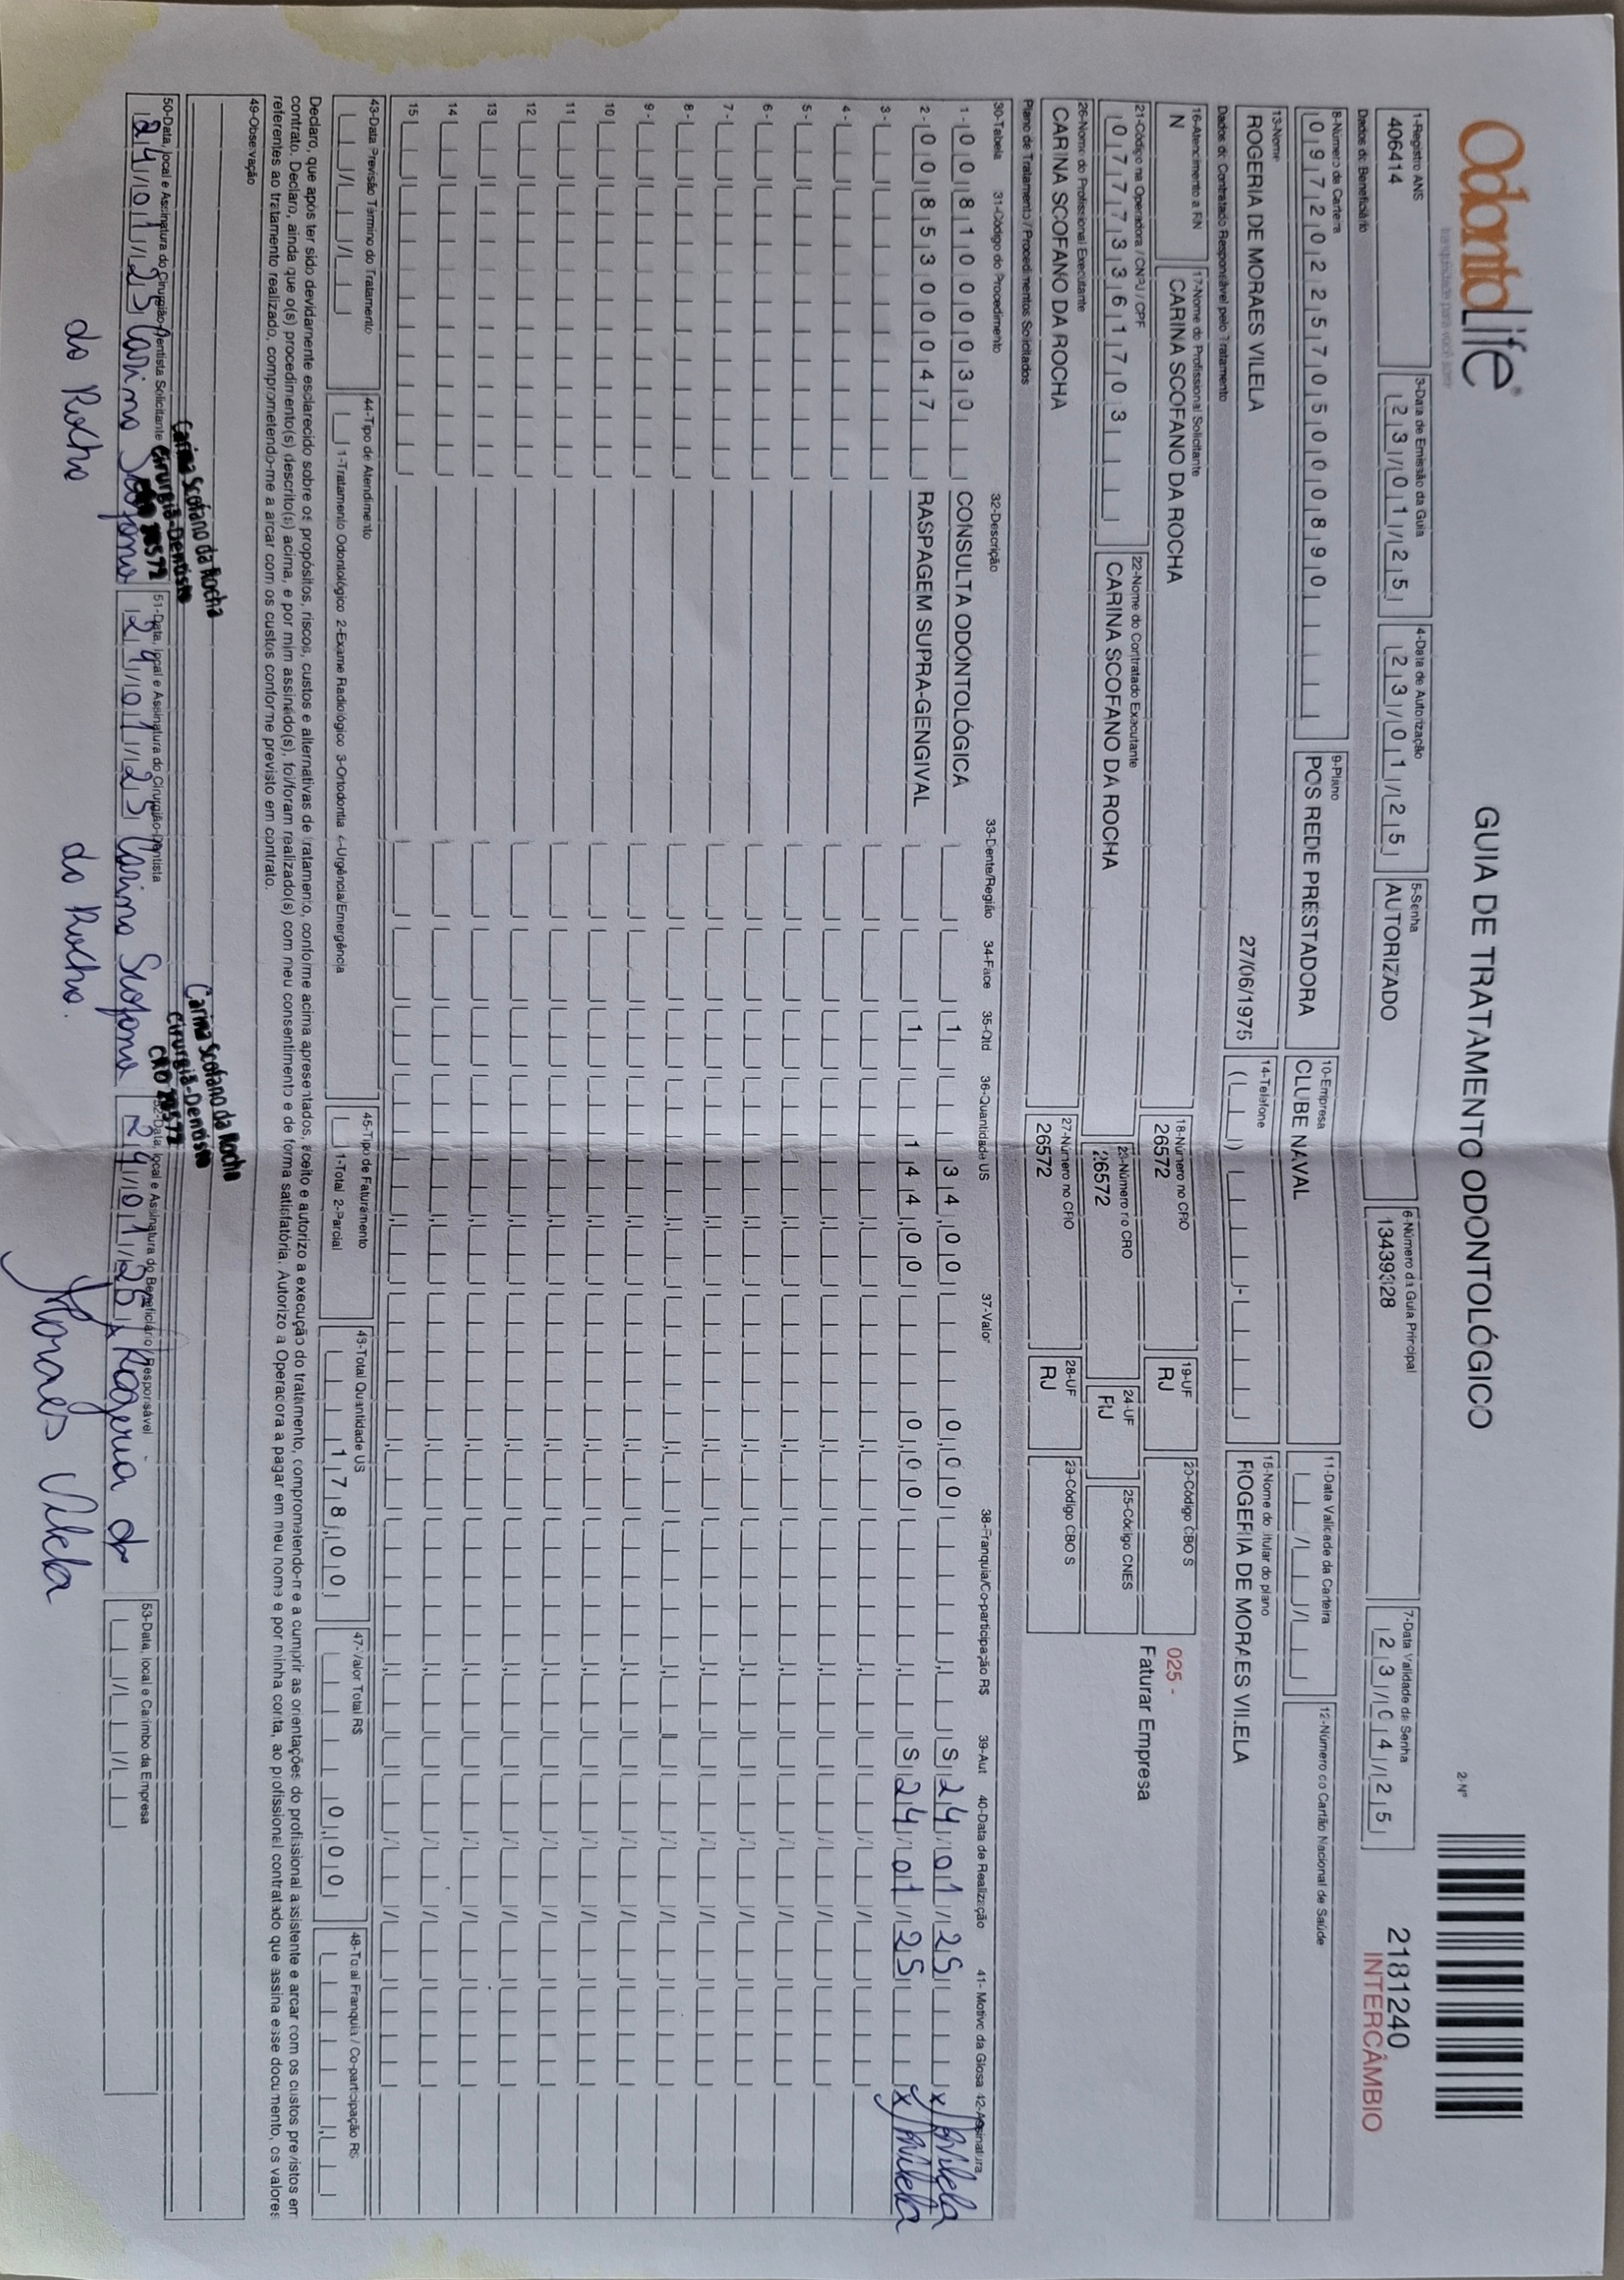 OdontoLife®
tranquilidade para você sorrir
GUIA DE TRATAMENTO ODONTOLÓGICO
2-Nº
2181240
INTERCÂMBIO
1-Registro ANS
406414
3-Data de Emissão da Guia
23/01/25
4-Data de Autorização
23/01/25
5-Senha
AUTORIZADO
6-Número da Guia Principal
13439328
7-Data Validade da Senha
23/04/25
Dados do Beneficiário
8-Número da Carteira
09720225705000890
9-Plano
POS REDE PRESTADORA
10-Empresa
CLUBE NAVAL
11-Data Validade da Carteira
12-Número do Cartão Nacional de Saúde
13-Nome
ROGERIA DE MORAES VILELA
27/06/1975
14-Telefone
15-Nome do titular do plano
ROGERIA DE MORAES VILELA
Dados do Contratado Responsável pelo Tratamento
16-Atendimento a RN
N
17-Nome do Profissional Solicitante
CARINA SCOFANO DA ROCHA
18-Número no CRO
26572
19-UF
RJ
20-Código CBO S
025 -
Faturar Empresa
21-Código na Operadora / CNPJ / CPF
07773361703
22-Nome do Contratado Executante
CARINA SCOFANO DA ROCHA
23-Número no CRO
26572
24-UF
RJ
25-Código CNES
26-Nome do Profissional Executante
CARINA SCOFANO DA ROCHA
27-Número no CRO
26572
28-UF
RJ
29-Código CBO S
Plano de Tratamento / Procedimentos Solicitados
30-Tabela 31-Código do Procedimento 32-Descrição 33-Dente/Região 34-Face 35-Qtd 36-Quantidade US 37-Valor 38-Franquia/Co-participação R$ 39-Aut 40-Data de Realização 41- Motivo da Glosa 42-Assinatura
1- 00 81000030 CONSULTA ODONTOLÓGICA 1 34,00 0,00 S 24/01/25 x Rvilela
2- 00 85300047 RASPAGEM SUPRA-GENGIVAL 1 144,00 0,00 S 24/01/25 x Rvilela
3-
4-
5-
6-
7-
8-
9-
10
11
12
13
14
15
43-Data Previsão Término do Tratamento
44-Tipo de Atendimento
1-Tratamento Odontológico 2-Exame Radiológico 3-Ortodontia 4-Urgência/Emergência
45-Tipo de Faturamento
1-Total 2-Parcial
46-Total Quantidade US
178,00
47-Valor Total R$
0,00
48-Total Franquia / Co-participação R$
Declaro, que após ter sido devidamente esclarecido sobre os propósitos, riscos, custos e alternativas de tratamento, conforme acima apresentados, aceito e autorizo a execução do tratamento, comprometendo-me a cumprir as orientações do profissional assistente e arcar com os custos previstos em
contrato. Declaro, ainda que o(s) procedimento(s) descrito(s) acima, e por mim assinado(s), foi/foram realizado(s) com meu consentimento e de forma satisfatória. Autorizo a Operadora a pagar em meu nome e por minha conta, ao profissional contratado que assina esse documento, os valores
referentes ao tratamento realizado, comprometendo-me a arcar com os custos conforme previsto em contrato.
49-Observação
Carina Scofano da Rocha
Cirurgiã-Dentista
Carina Scofano da Rocha
Cirurgiã-Dentista
50-Data, local e Assinatura do Cirurgião-Dentista Solicitante
24/01/25 Carina Scofano
da Rocha
51-Data, local e Assinatura do Cirurgião-Dentista
24/01/25 Carina Scofano
da Rocha.
52-Data, local e Assinatura do Beneficiário / Responsável
24/01/25 x Rogeria de
Moraes Vilela
53-Data, local e Carimbo da Empresa